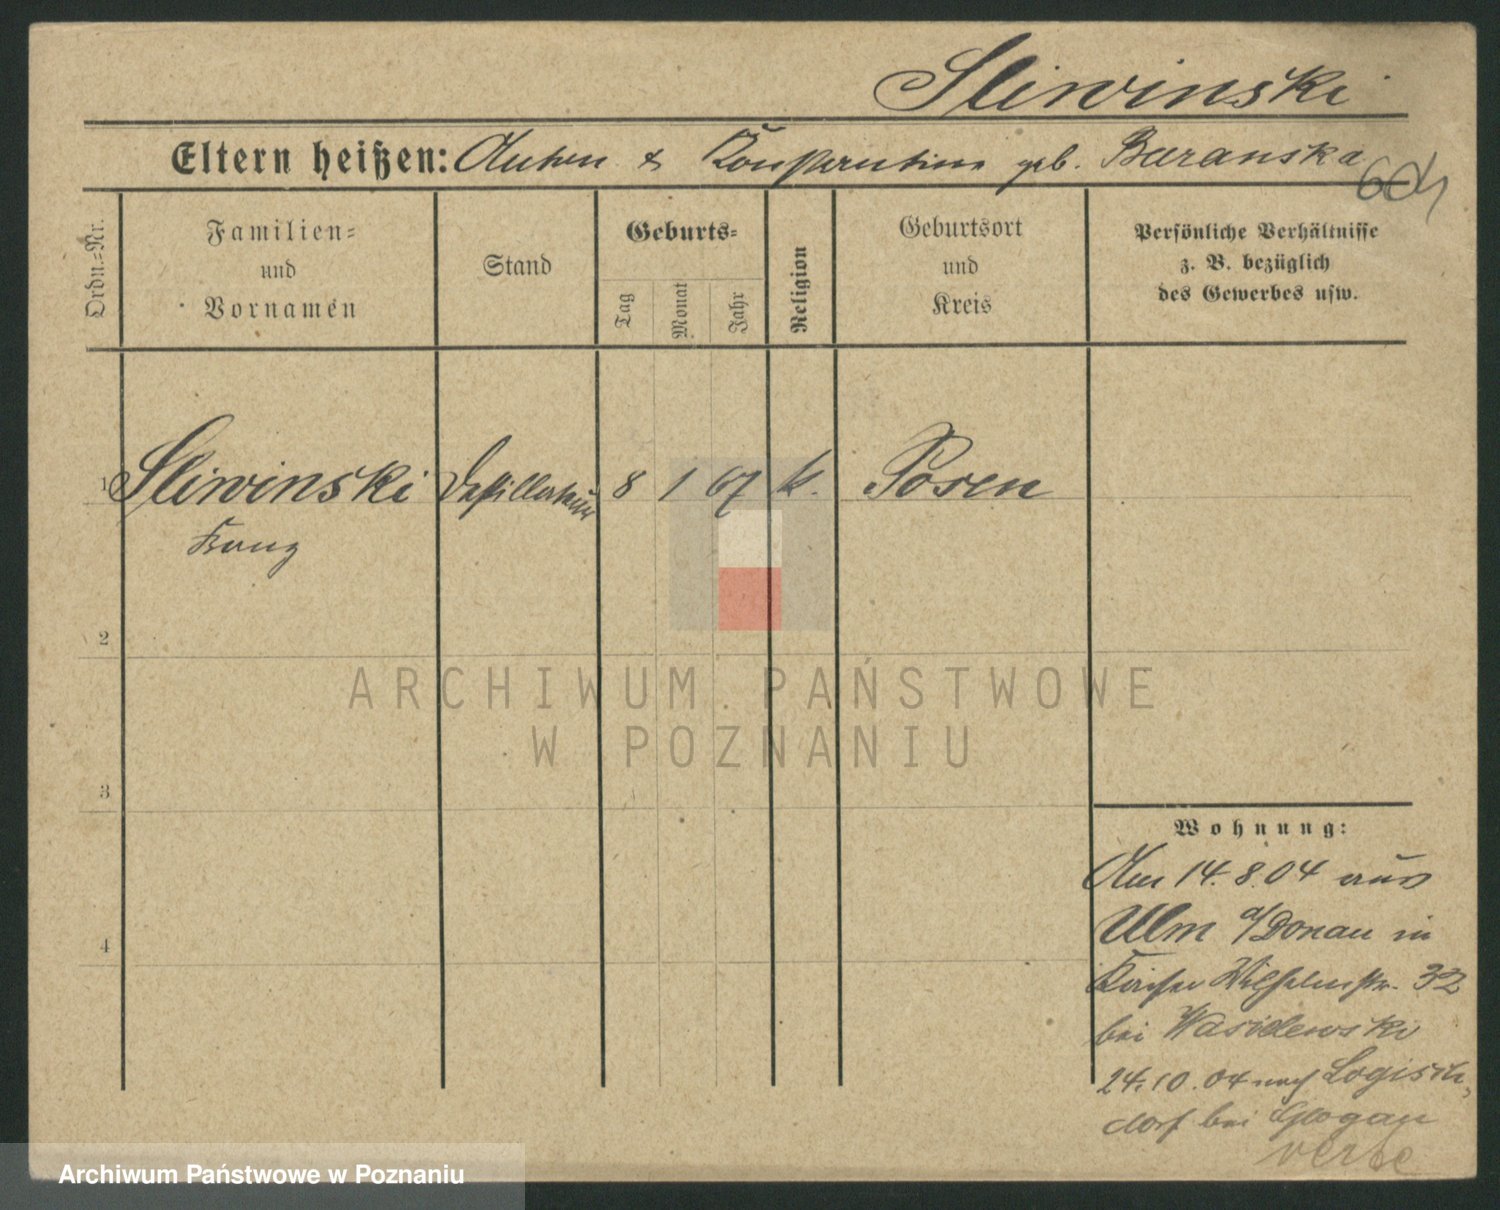 Sliwinski
Eltern heißen: Anton & Konstantine geb. Baranska
Ordn.-Nr.
Familien-
und
Vornamen
Stand
Geburts-
Tag
Monat
Jahr
Religion
Geburtsort
und
Kreis
Persönliche Verhältnisse
z. B. bezüglich
des Gewerbes usw.
1 Sliwinski Destillateur 8 1 67 k. Posen
Franz
2
ARCHIWUM PAŃSTWOWE
W POZNANIU
3
4
Wohnung:
Am 14.8.04 aus
Ulm a/Donau in
Kaiser Wilhelmstr. 32
bei Wasielewski
24.10.04 nach Logisch,
dorf bei Glogau
Archiwum Państwowe w Poznaniu